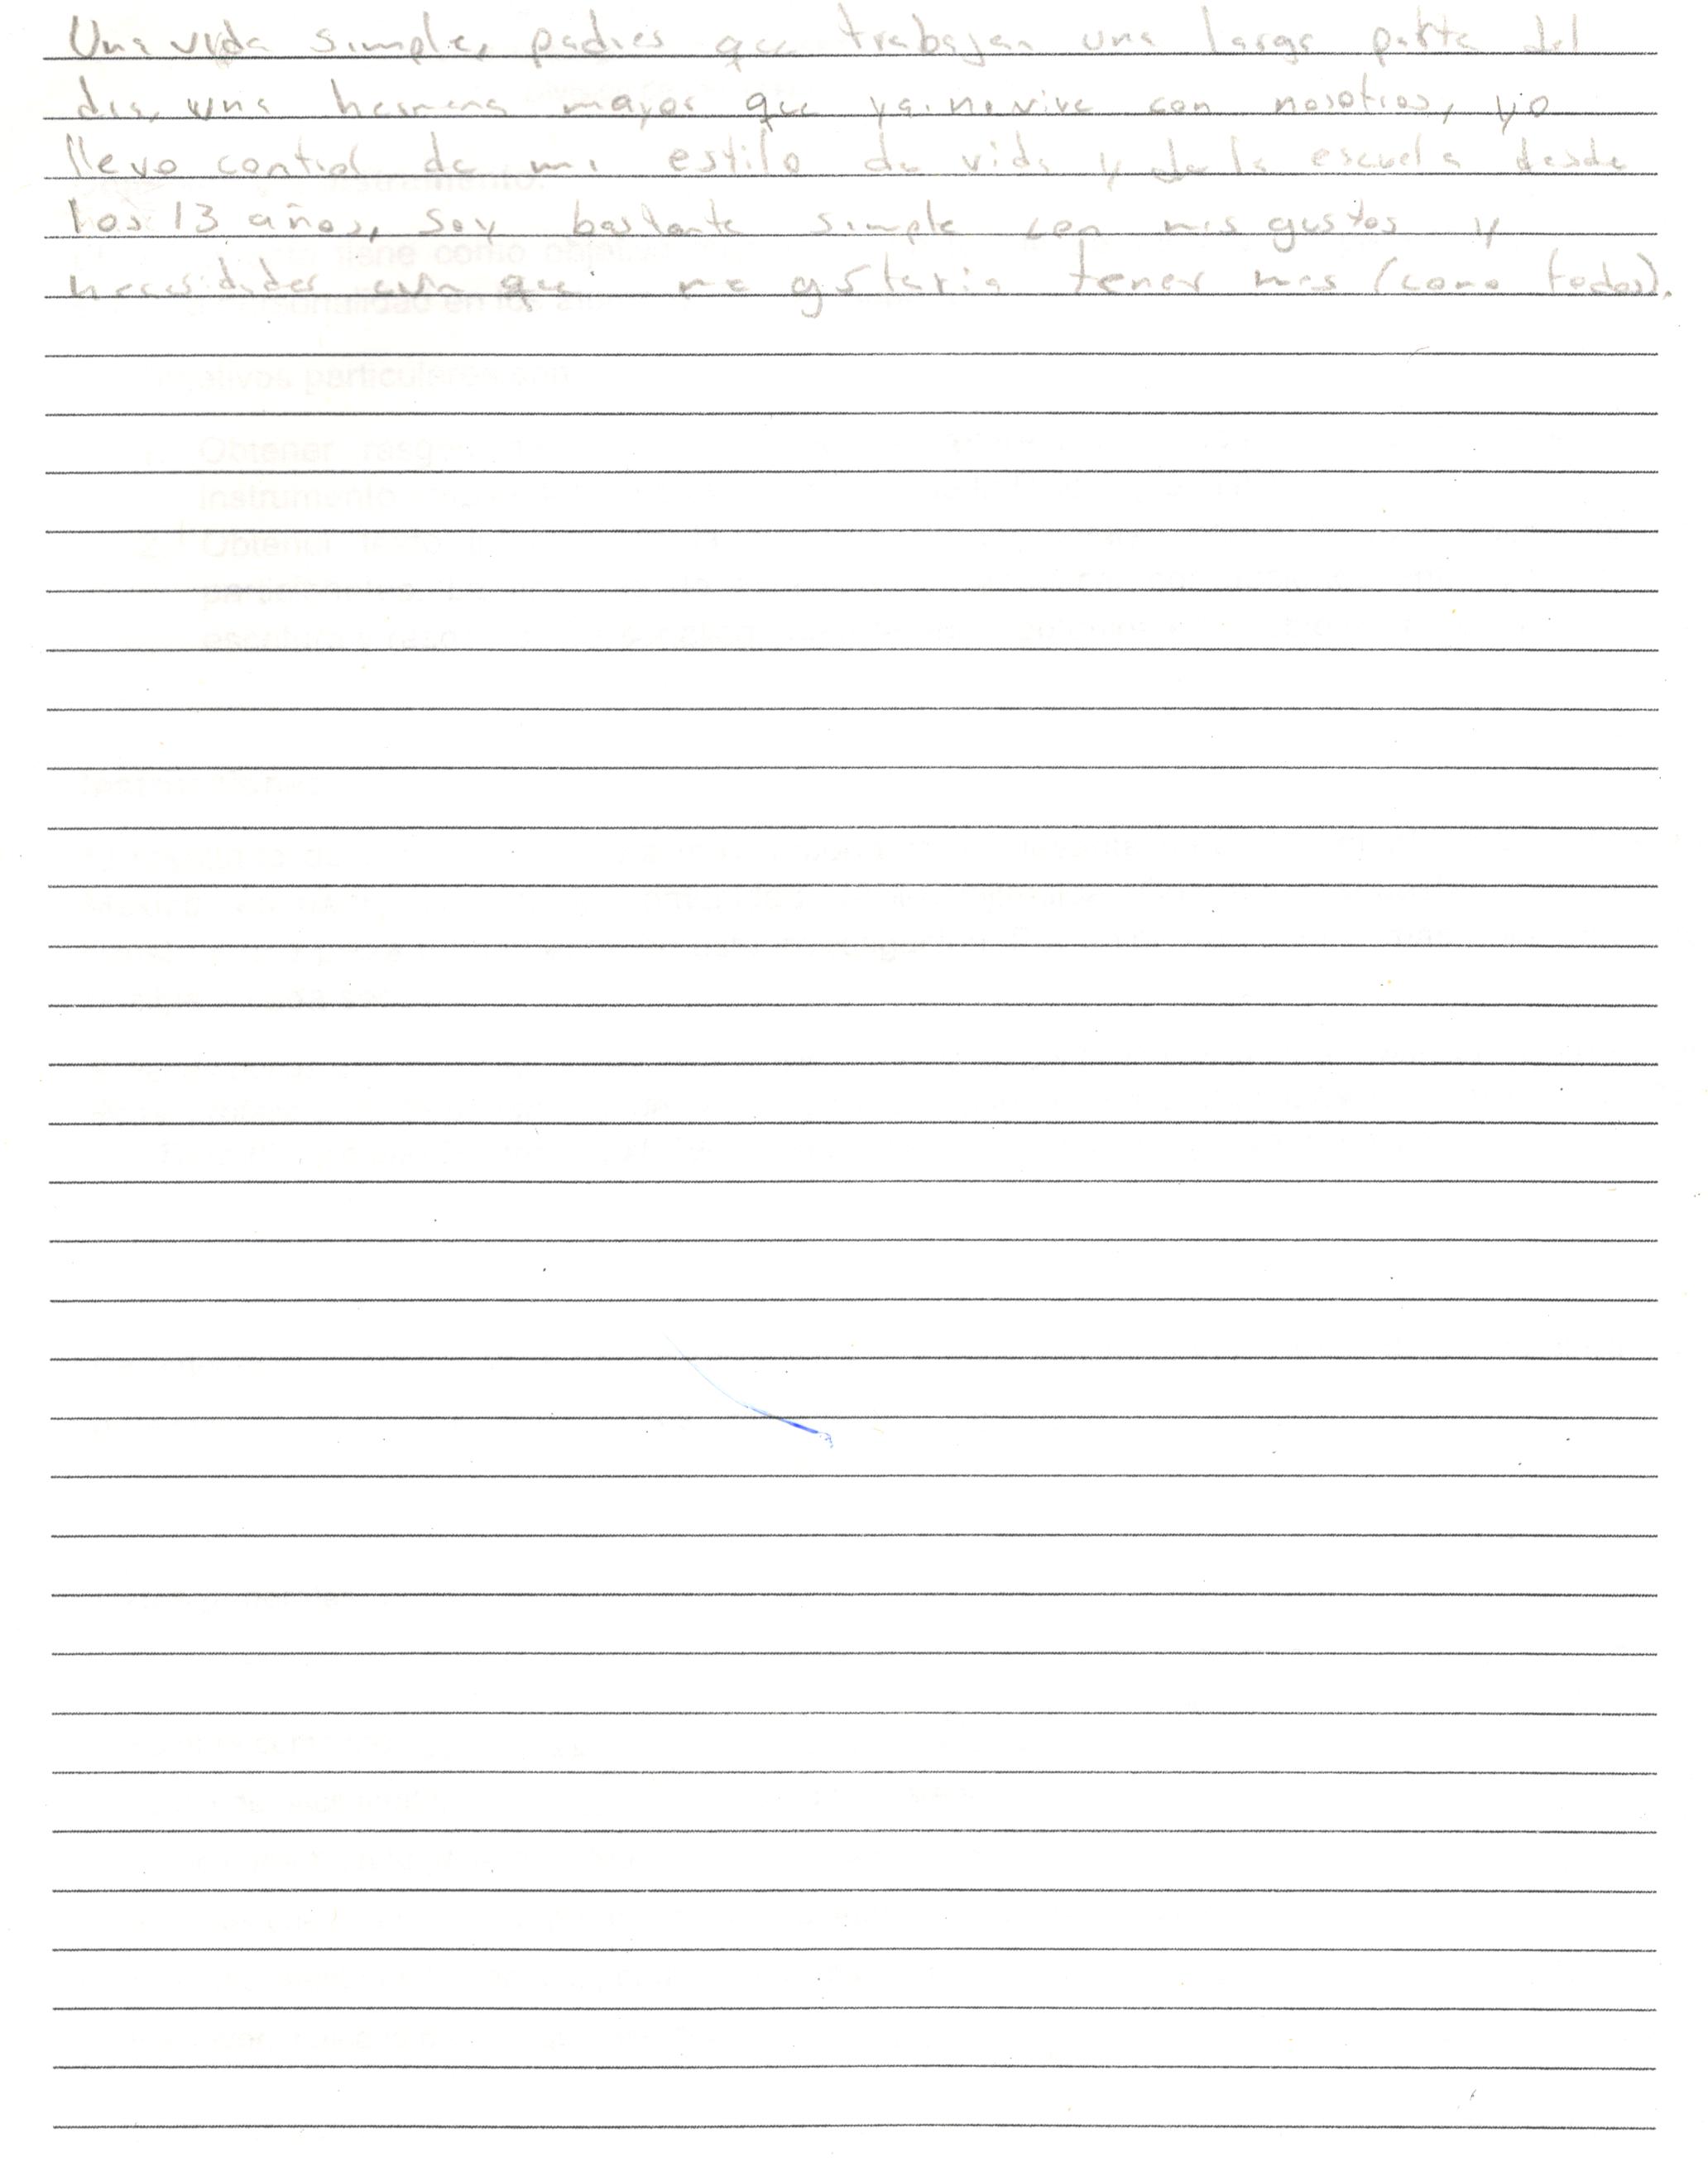 Una vida simple, padres que trabajan una larga parte del
dia, una hermana mayor que ya no vive con nosotros, yo
llevo control de mi estilo de vida y de la escuela desde
los 13 años, soy bastante simple con mis gustos y
necesidades aun que me gustaria tener mas (como todos).